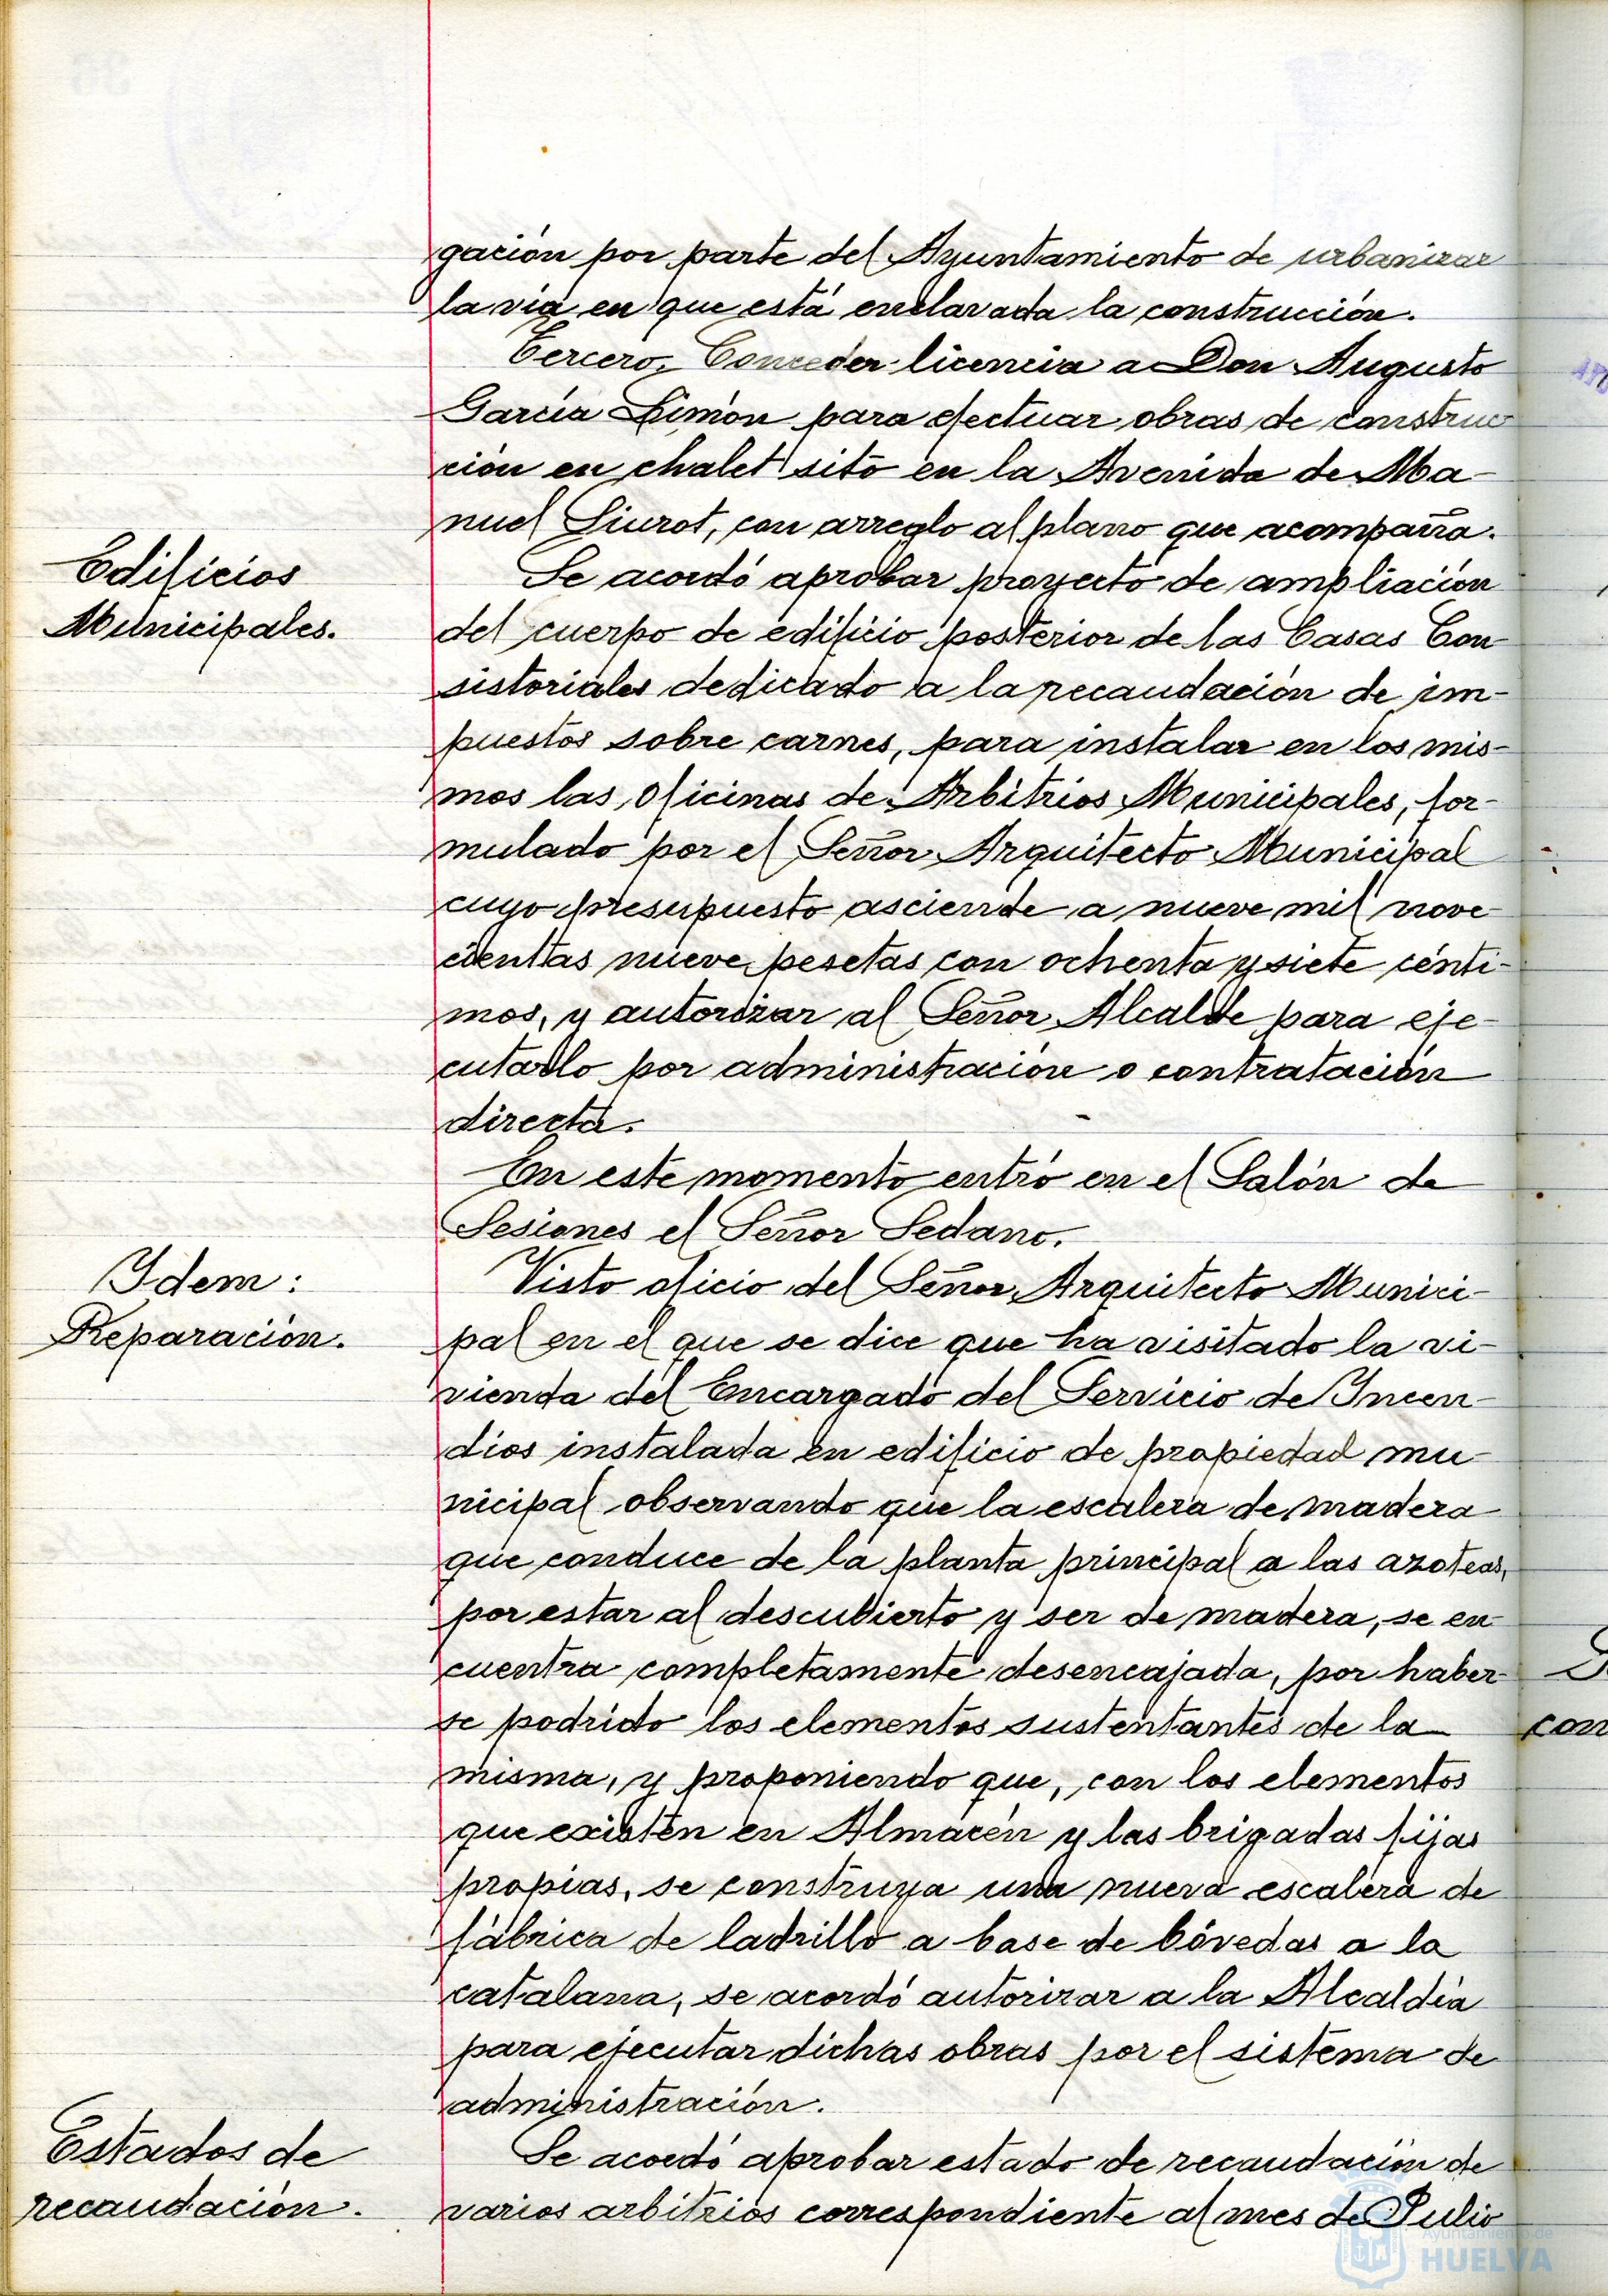 gación por parte del Ayuntamiento de urbanizar
la vía en que está enclavada la construcción.
Tercero. Conceder licencia a Don Augusto
García Limón para efectuar obras de construc
ción en chalet sito en la Avenida de Ma-
nuel Siurot, con arreglo al plano que acompaña.
Edificios
Municipales.
Se acordó aprobar proyecto de ampliación
del cuerpo de edificio posterior de las Casas Con
sistoriales dedicado a la recaudación de im-
puestos sobre carnes, para instalar en los mis-
mos las oficinas de Arbitrios Municipales, for-
mulado por el Señor Arquitecto Municipal
cuyo presupuesto asciende a nueve mil nove-
cientas nueve pesetas con ochenta y siete cénti-
mos, y autorizar al Señor Alcalde para eje-
cutarlo por administración o contratación
directa.
En este momento entró en el Salón de
Sesiones el Señor Sedano.
Idem:
Reparación.
Visto oficio del Señor Arquitecto Munici-
pal en el que se dice que ha visitado la vi-
vienda del Encargado del Servicio de Incen-
dios instalada en edificio de propiedad mu-
nicipal observando que la escalera de madera
que conduce de la planta principal a las azoteas,
por estar al descubierto y ser de madera, se en-
cuentra completamente desencajada, por haber-
se podrido los elementos sustentantes de la
misma, y proponiendo que, con los elementos
que existen en Almacén y las brigadas fijas
propias, se construya una nueva escalera de
fábrica de ladrillo a base de bóvedas a la
catalana, se acordó autorizar a la Alcaldía
para ejecutar dichas obras por el sistema de
administración.
Estados de
recaudación.
Se acordó aprobar estado de recaudación de
varios arbitrios correspondiente al mes de Julio
con
Ayuntamiento de
HUELVA